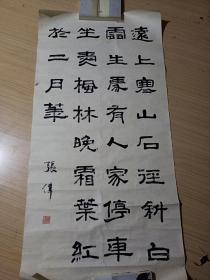 遠上寒山石徑斜白
雲生處有人家停車
坐愛楓林晚霜葉紅
於二月華
張偉